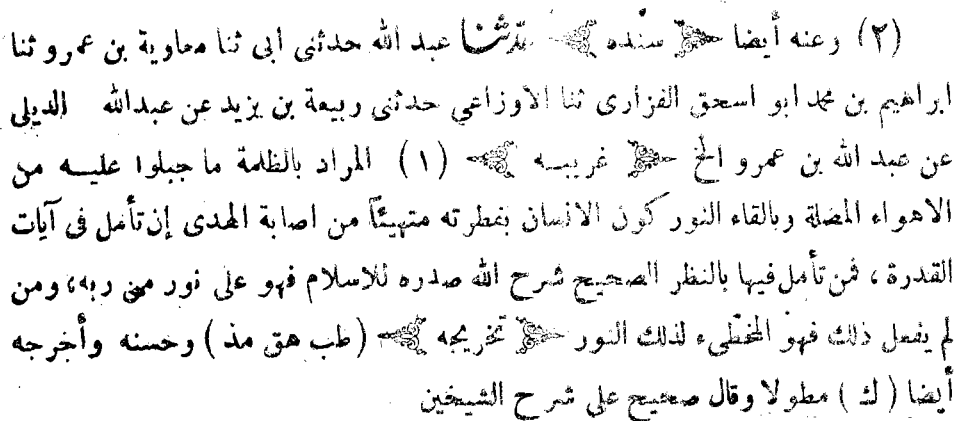 (٢) وعنه أيضا ﴿ سنده ﴾ حدثنا عبد الله حدثنى ابى ثنا معاوية بن عمرو ثنا
ابراهيم بن محمد ابو اسحق الفزارى ثنا الاوزاعي حدثنى ربيعة بن يزيد عن عبدالله الديلى
عن عبد الله بن عمرو الخ ﴿ غريبه ﴾ (١) المراد بالظلمة ما جبلوا عليه من
الاهواء المضلة وبالقاء النور كون الانسان بفطرته متهيئًا من اصابة الهدى إن تأمل فى آيات
القدرة ، فمن تأمل فيها بالنظر الصحيح شرح الله صدره للاسلام فهو على نور من ربه، ومن
لم يفعل ذلك فهو المخطىء لذلك النور ﴿ تخريجه ﴾ (طب هق مذ) وحسنه وأخرجه
أيضا (ك) مطولا وقال صحيح على شرح الشيخين